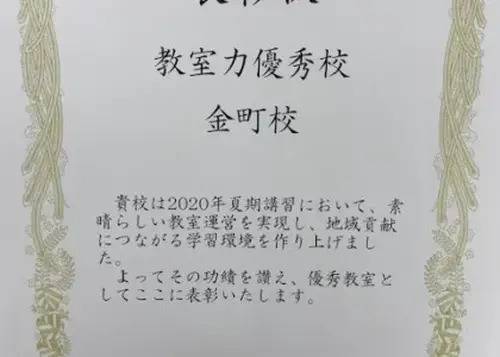 教室力優秀校
金町校
貴校は2020年夏期講習において、素
晴らしい教室運営を実現し、地域貢献
につながる学習環境を作り上げまし
た。
よってその功績を讃え、優秀教室と
してここに表彰いたします。